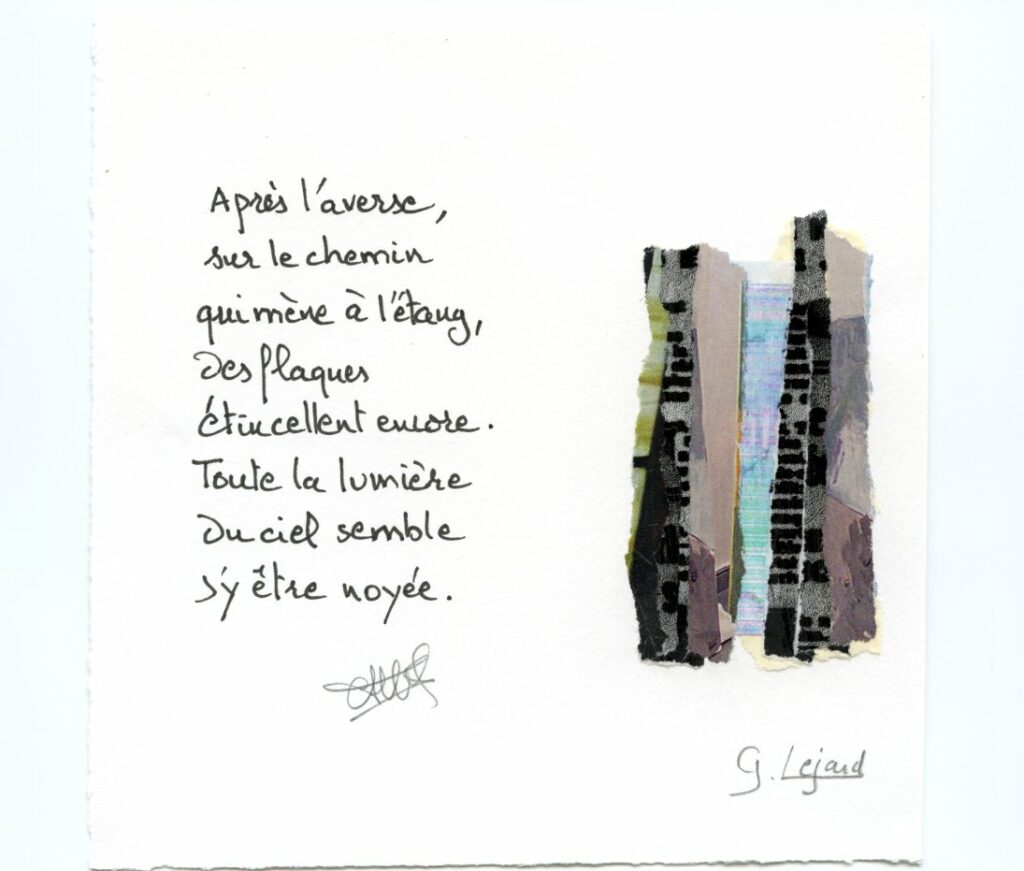 Après l'averse,
sur le chemin
qui mène à l'étang,
des flaques
étincellent encore.
Toute la lumière
du ciel semble
s'y être noyée.
G. Lejard